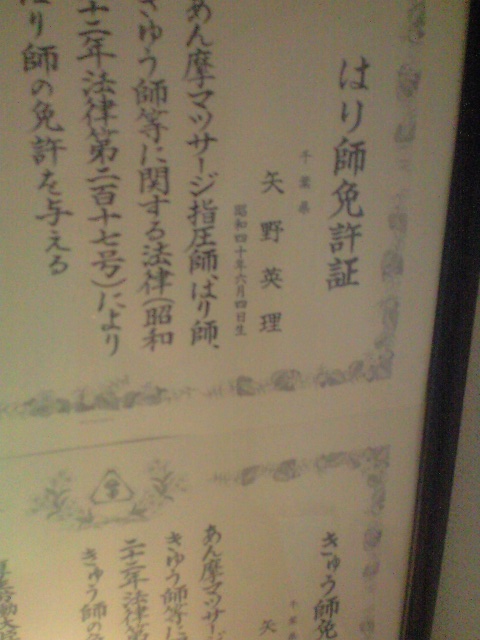 はり師免許証
千葉県
矢野英理
昭和四十年六月四日生
あん摩マツサージ指圧師、はり師、
きゆう師等に関する法律(昭和
十二年法律第二百十七号)により
はり師の免許を与える
きゆう師免
千葉県
矢
あん摩マツサージ
きゆう師等に
二十二年法律第
きゆう師の免